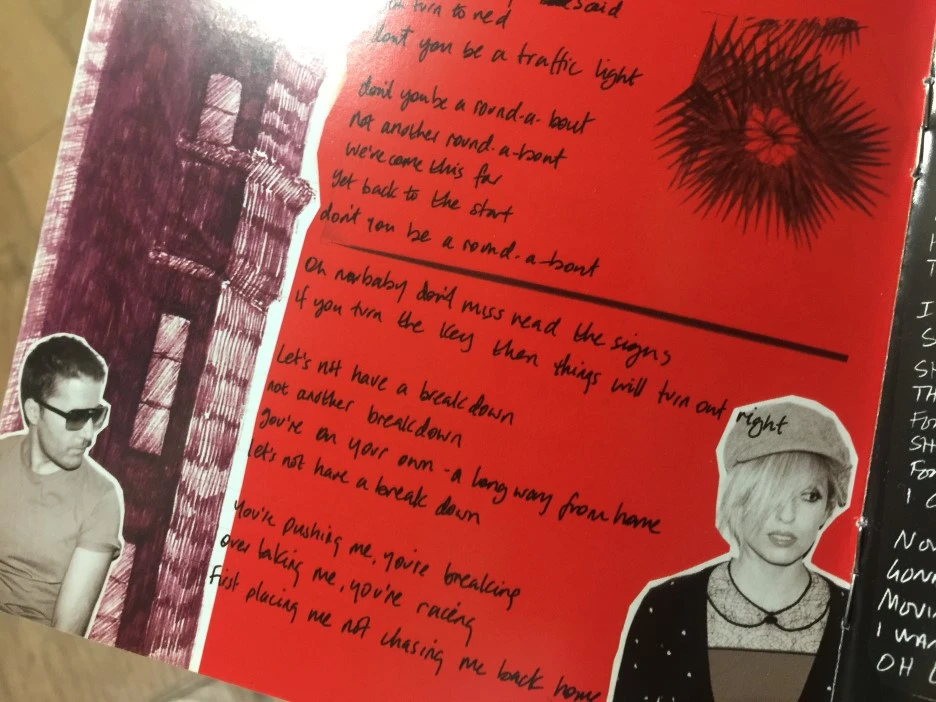 said
turn to red
dont you be a traffic light
don't you be a round-a-bout
not another round-a-bout
we're come this far
get back to the start
don't you be a round-a-bout
Oh now baby don't miss read the signs
if you turn the key then things will turn out right
Let's not have a breakdown
not another breakdown
You're on your own - a long way from home
Let's not have a break down
You're pushing me, you're breaking
over taking me, you're racing
First placing me not chasing me back home
I
S
SH
TH
FO
SH
FO
I
NO
GON
MOVI
I WA
OH